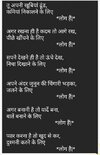 तू अपनी खूबियां ढूंढ,
कमियां निकालने के लिए
"लोग हैं"
अगर रखना ही है कदम तो आगे रख,
पीछे खींचने के लिए
"लोग हैं"
सपने देखने ही है तो ऊंचे देख,
निचा दिखाने के लिए
"लोग हैं"
अपने अंदर जुनून की चिंगारी भड़का,
जलने के लिए
"लोग हैं"
अगर बनानी है तो यादें बना,
बातें बनाने के लिए
"लोग हैं"
प्यार करना है तो खुद से कर,
दुश्मनी करने के लिए
"लोग हैं"